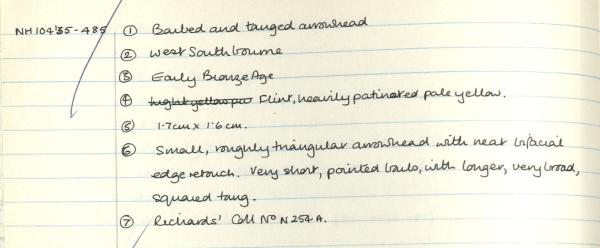 NH104'35-485 ① Barbed and tanged arrowhead
② West Southbourne
③ Early Bronze Age
④ Flint, heavily patinated pale yellow.
⑤ 1.7cm x 1.6cm.
⑥ Small, roughly triangular arrowhead with neat bifacial
edge retouch. Very short, pointed barbs, with longer, very broad,
squared tang.
⑦ Richards' Coll No N254A.